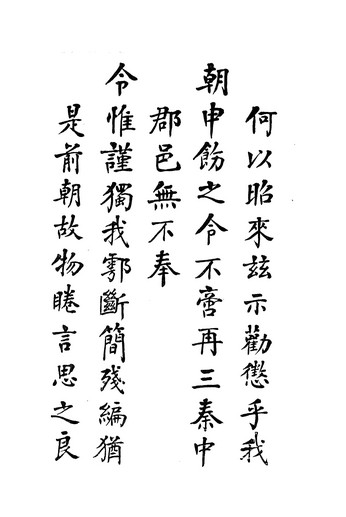 何以昭來玆示勸懲乎我
朝申飭之令不啻再三秦中
郡邑無不奉
令惟謹獨我鄠斷簡殘編猶
是前朝故物睠言思之良